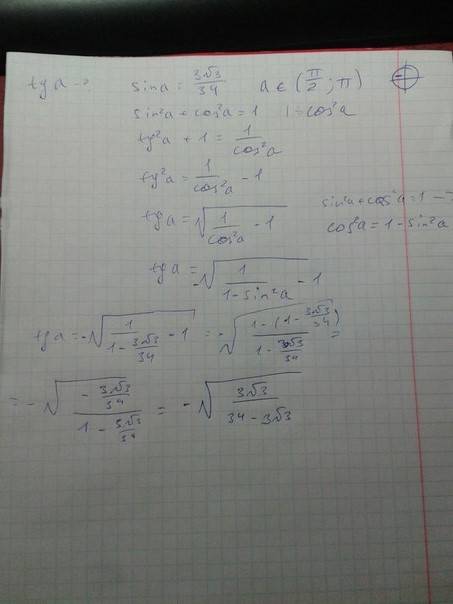 tg a - ? sin a = 3√3/34 a ∈ (π/2 ; π)
sin²a + cos²a = 1 | ÷ cos²a
tg²a + 1 = 1/cos²a
tg²a = 1/cos²a - 1
tg a = -√(1/cos²a - 1) sin²a + cos²a = 1 →
cos²a = 1 - sin²a
tg a = -√(1/(1 - sin²a) - 1)
tg a = -√(1/(1 - 3√3/34) - 1) = -√((1 - (1 - 3√3/34))/(1 - 3√3/34)) =
= -√((- 3√3/34)/(1 - 3√3/34)) = -√(3√3/(34 - 3√3))